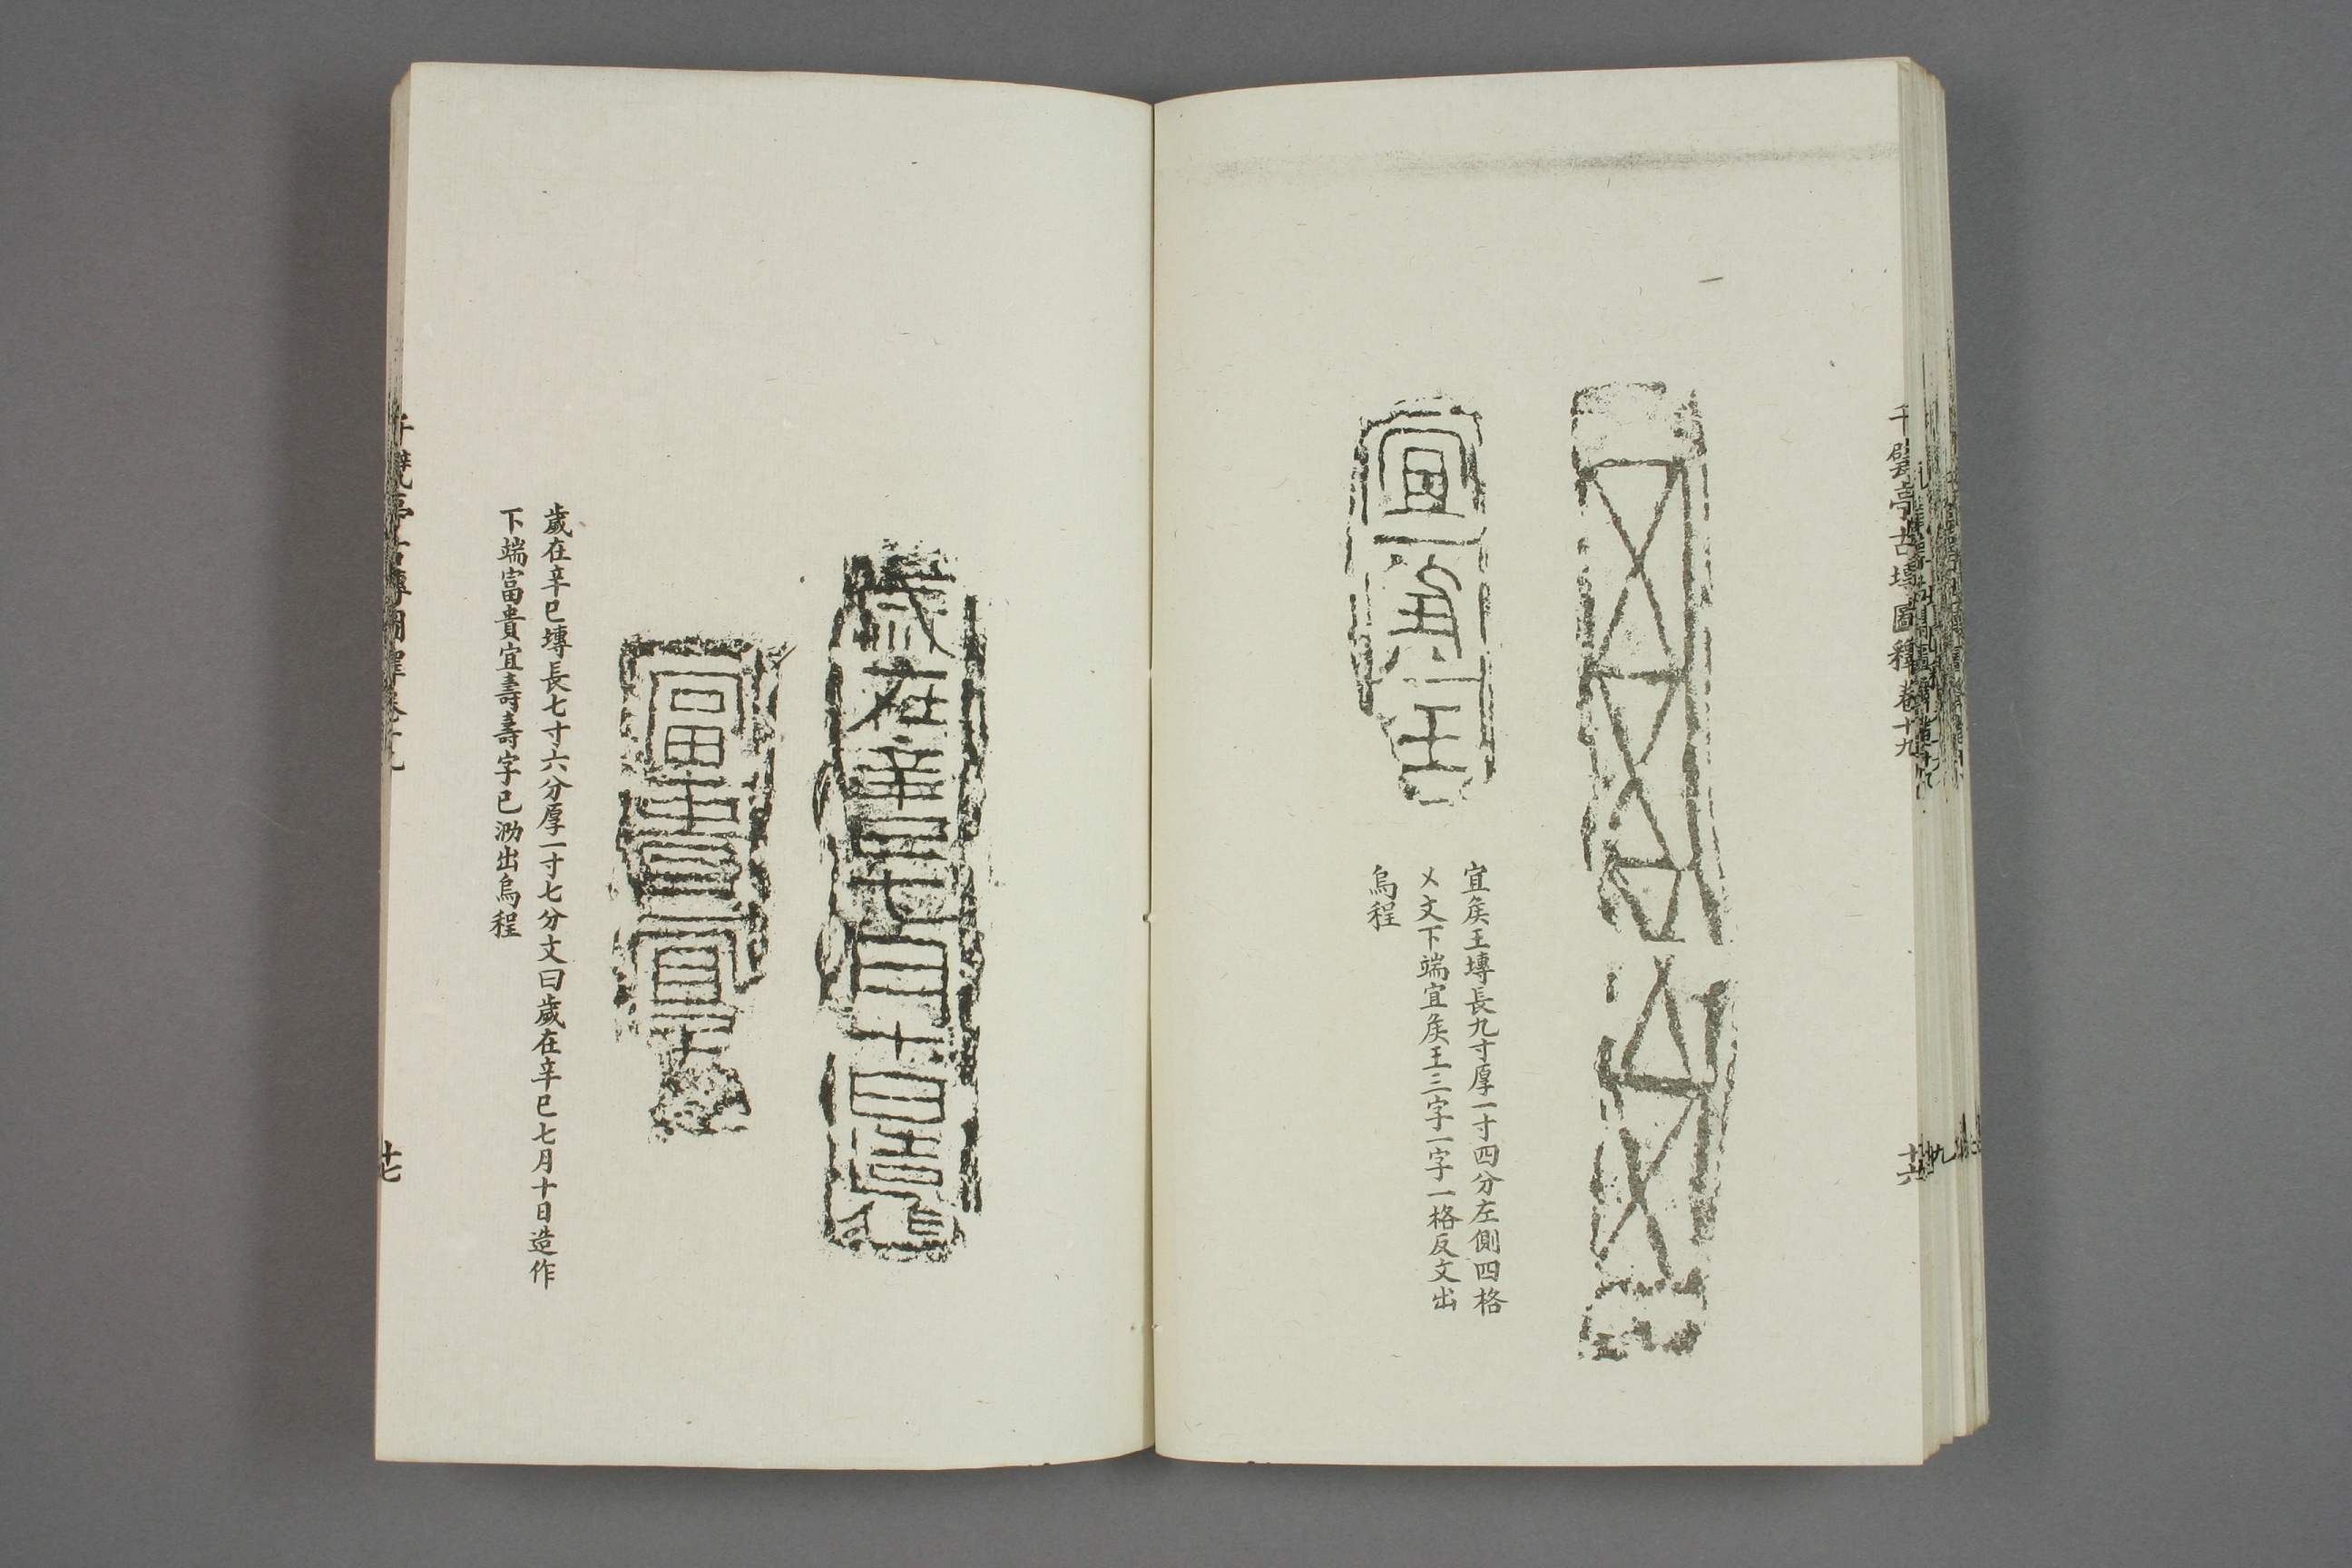 千甓亭古塼圖釋卷十九
十六
宜矦王
宜矦王塼長九寸厚一寸四分左側四格
乂文下端宜矦王三字一字一格反文出
烏程
歲在辛巳七月十日造作
富貴宜壽
歲在辛巳塼長七寸六分厚一寸七分文曰歲在辛巳七月十日造作
下端富貴宜壽壽字已泐出烏程
千甓亭古塼圖釋卷十九
十七